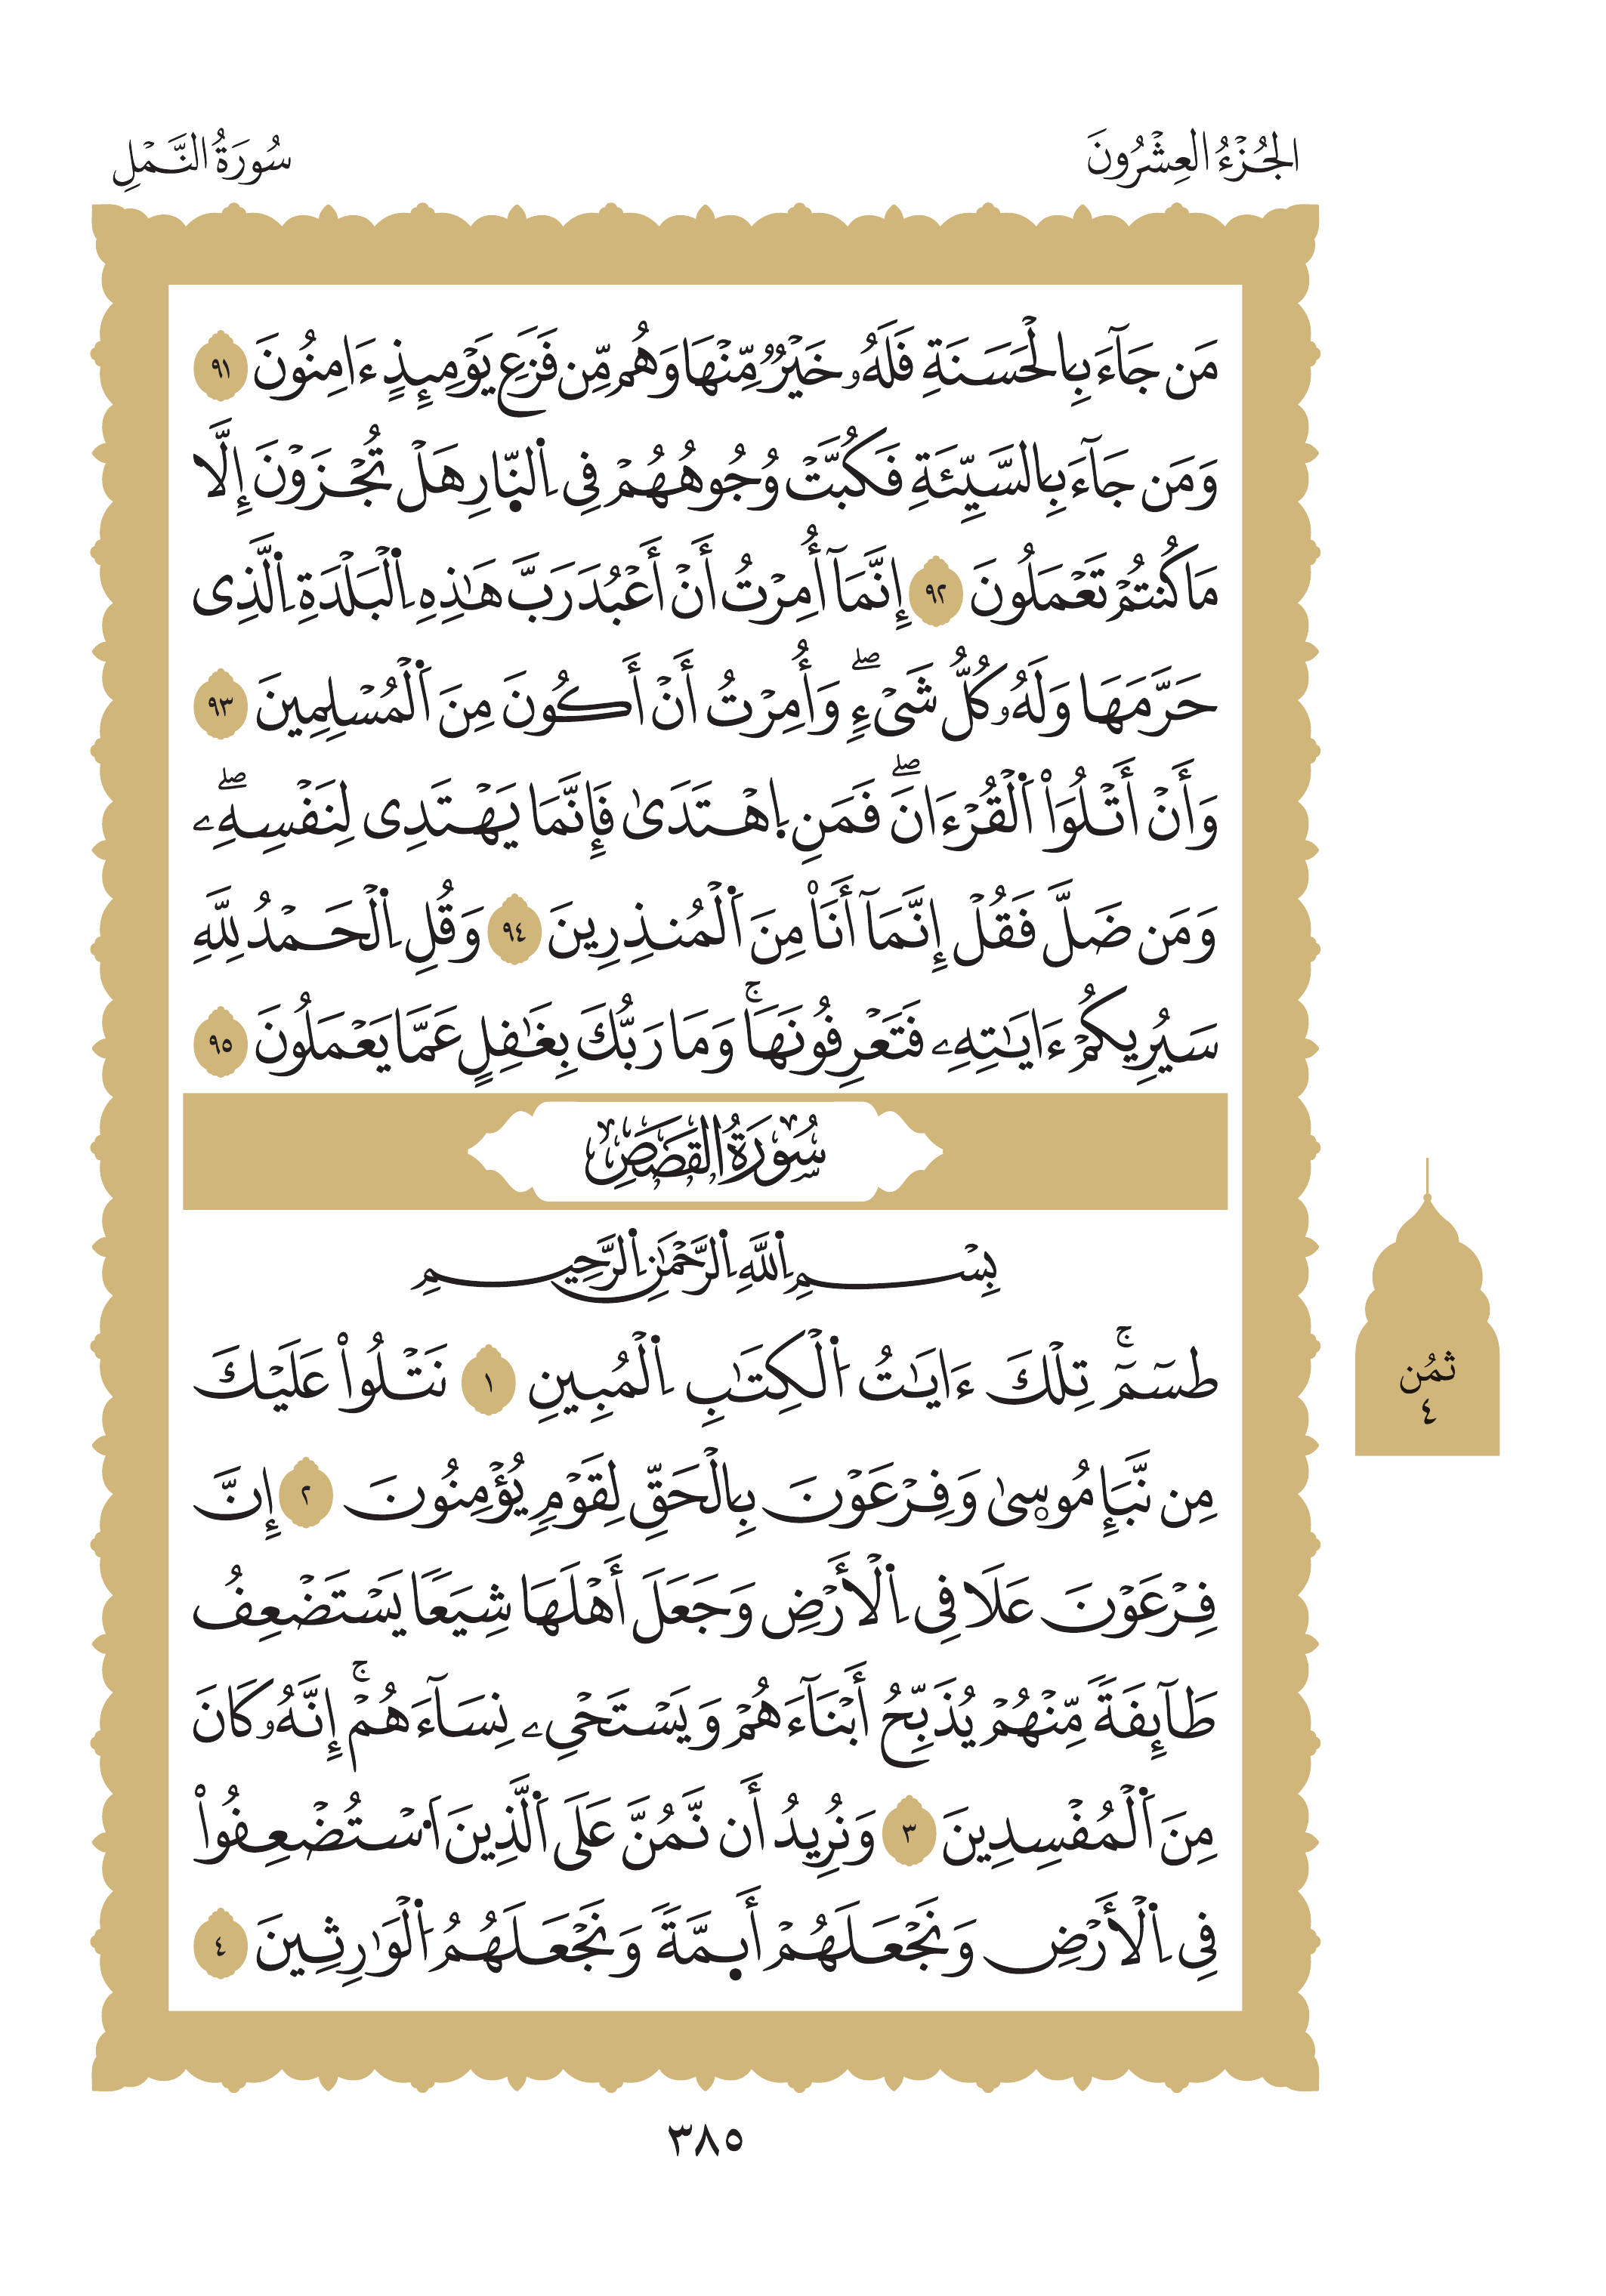 الجُزْءُ العِشْرُونَ
سُورَةُ النَّمْلِ
مَن جَآءَ بِالْحَسَنَةِ فَلَهُۥ خَيْرٌ مِّنْهَا وَهُم مِّن فَزَعِ يَوْمِئِذٍ ءَامِنُونَ ٩١
وَمَن جَآءَ بِالسَّيِّئَةِ فَكُبَّتْ وُجُوهُهُمْ فِي اِ۬لنّ۪ارِ هَلْ تُجْزَوْنَ إِلَّا
مَا كُنتُمْ تَعْمَلُونَ ٩٢ إِنَّمَآ أُمِرْتُ أَنْ أَعْبُدَ رَبَّ هَٰذِهِ اِ۬لْبَلْدَةِ اِ۬لَّذِى
حَرَّمَهَا وَلَهُۥ كُلُّ شَىْءٍۖ وَأُمِرْتُ أَنْ أَكُونَ مِنَ اَ۬لْمُسْلِمِينَ ٩٣
وَأَنْ أَتْلُوَاْ اَ۬لْقُرْءَانَۖ فَمَنِ اِ۪هْتَدَىٰ فَإِنَّمَا يَهْتَدِى لِنَفْسِهِۦۖ
وَمَن ضَلَّ فَقُلْ إِنَّمَآ أَنَا۠ مِنَ اَ۬لْمُنذِرِينَ ٩٤ وَقُلِ اِ۬لْحَمْدُ لِلَّهِ
سَيُرِيكُمْ ءَايَٰتِهِۦ فَتَعْرِفُونَهَاۚ وَمَا رَبُّكَ بِغَٰفِلٍ عَمَّا يَعْمَلُونَ ٩٥
سُورَةُ القَصَصِ
بِسْمِ اِ۬للَّهِ اِ۬لرَّحْمَٰنِ اِ۬لرَّحِيمِ
طسٓمٓۚ تِلْكَ ءَايَٰتُ اُ۬لْكِتَٰبِ اِ۬لْمُبِينِ ١ نَتْلُواْ عَلَيْكَ
مِن نَّبَإِ مُوس۪ىٰ وَفِرْعَوْنَ بِالْحَقِّ لِقَوْمٍ يُؤْمِنُونَ ٢ إِنَّ
فِرْعَوْنَ عَلَا فِي اِ۬لْأَرْضِ وَجَعَلَ أَهْلَهَا شِيَعًا يَسْتَضْعِفُ
طَآئِفَةً مِّنْهُمْ يُذَبِّحُ أَبْنَآءَهُمْ وَيَسْتَحْىِۦ نِسَآءَهُمْۚ إِنَّهُۥ كَانَ
مِنَ اَ۬لْمُفْسِدِينَ ٣ وَنُرِيدُ أَن نَّمُنَّ عَلَى اَ۬لَّذِينَ اَ۟سْتُضْعِفُواْ
فِي اِ۬لْأَرْضِ وَنَجْعَلَهُمْ أَي۪مَّةً وَنَجْعَلَهُمُ اُ۬لْوَٰرِثِينَ ٤
ثُمُن
٤
٣٨٥